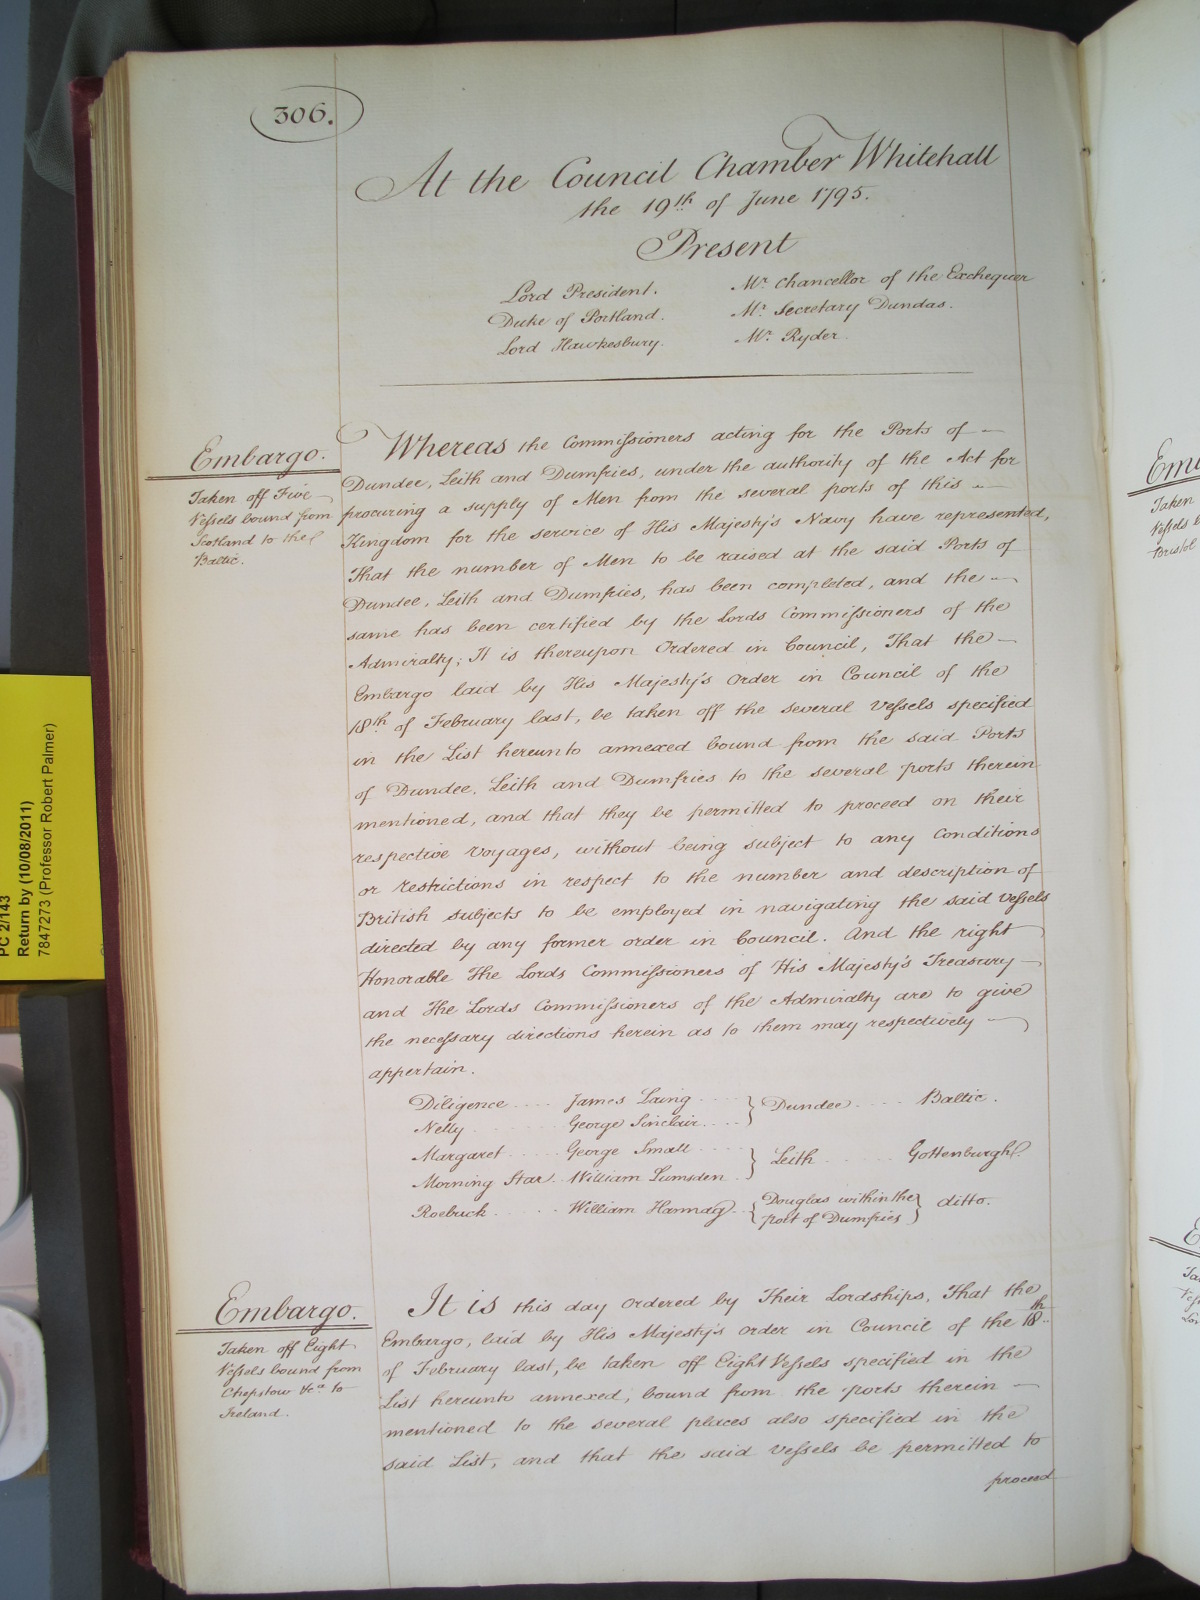 306.
At the Council Chamber Whitehall
the 19th of June 1795.
Present
Lord President.
Duke of Portland.
Lord Hawkesbury.
Mr. Chancellor of the Exchequer
Mr. Secretary Dundas.
Mr. Ryder.
Embargo.
Taken off Five
Vessels bound from
Scotland to the
Baltic.
Whereas the Commissioners acting for the Ports of
Dundee, Leith and Dumfries, under the authority of the Act for
procuring a supply of Men from the several ports of this
Kingdom for the service of His Majesty's Navy have represented,
That the number of Men to be raised at the said Ports of
Dundee, Leith and Dumfries, has been completed, and the
same has been certified by the Lords Commissioners of the
Admiralty; It is thereupon Ordered in Council, That the
Embargo laid by His Majesty's Order in Council of the
18th of February last, be taken off the several Vessels specified
in the List hereunto annexed bound from the said Ports
of Dundee, Leith and Dumfries to the several ports therein
mentioned, and that they be permitted to proceed on their
respective Voyages, without being subject to any Conditions
or restrictions in respect to the number and description of
British subjects to be employed in navigating the said Vessels
directed by any former order in Council. And the right
Honorable The Lords Commissioners of His Majesty's Treasury
and The Lords Commissioners of the Admiralty are to give
the necessary directions herein as to them may respectively
appertain.
Diligence .... James Laing .... } Dundee .... Baltic.
Nelly ....... George Sinclair ....
Margaret .... George Small .... } Leith .... Gottenburgh.
Morning Star .. William Lumsden ..
Roebuck ..... William Hannay .. { Douglas within the } ditto.
port of Dumfries
Embargo.
Taken off Eight
Vessels bound from
Chepstow &ca. to
Ireland.
It is this day Ordered by Their Lordships, That the
Embargo, laid by His Majesty's Order in Council of the 18th
of February last, be taken off Eight Vessels specified in the
List hereunto annexed, bound from the ports therein
mentioned to the several places also specified in the
said List, and that the said Vessels be permitted to
proceed
PC 2/143
Return by (10/08/2011)
7847273 (Professor Robert Palmer)
Taken
Vessels
Bristol